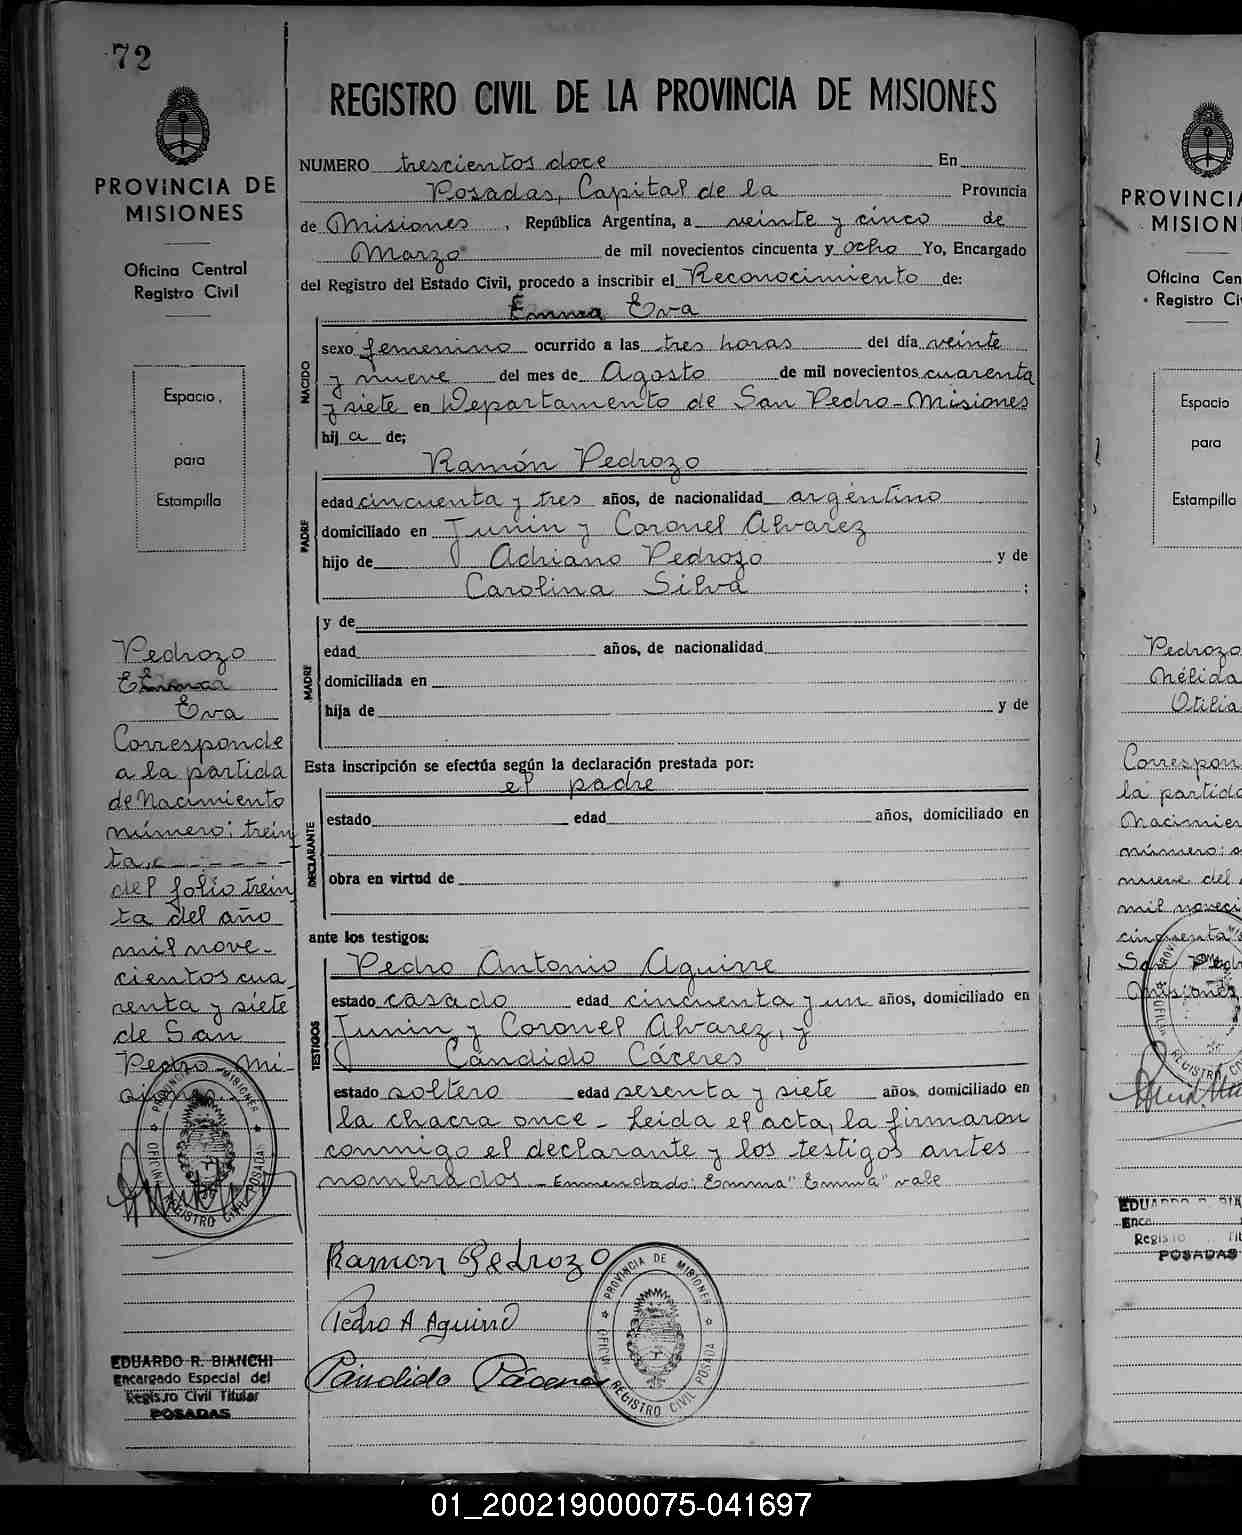 72
PROVINCIA DE
MISIONES
Oficina Central
Registro Civil
Espacio,
para
Estampilla
Pedrozo
Emma
Eva
Corresponde
a la partida
de Nacimiento
número: trein
ta, c - - - - - -
del folio trein
ta del año
mil nove-
cientos cua
renta y siete
de San
Pedro - Mi-
siones.
PROVINCIA DE MISIONES
OFICINA REGISTRO CIVIL POSADAS
EDUARDO R. BIANCHI
Encargado Especial del
Registro Civil Titular
POSADAS
REGISTRO CIVIL DE LA PROVINCIA DE MISIONES
NUMERO trescientos doce En
Posadas, Capital de la Provincia
de Misiones, República Argentina, a veinte y cinco de
Marzo de mil novecientos cincuenta y ocho Yo, Encargado
del Registro del Estado Civil, procedo a inscribir el Reconocimiento de:
Emma Eva
NACIDO
sexo femenino ocurrido a las tres horas del día veinte
y nueve del mes de Agosto de mil novecientos cuarenta
y siete en Departamento de San Pedro - Misiones
hij a de;
Ramón Pedrozo
PADRE
edad cincuenta y tres años, de nacionalidad argentino
domiciliado en Junin y Coronel Alvarez
hijo de Adriano Pedrozo y de
Carolina Silva ;
MADRE
y de
edad años, de nacionalidad
domiciliada en
hija de y de
Esta inscripción se efectúa según la declaración prestada por:
el padre
DECLARANTE
estado edad años, domiciliado en
obra en virtud de
ante los testigos:
Pedro Antonio Aguirre
TESTIGOS
estado casado edad cincuenta y un años, domiciliado en
Junin y Coronel Alvarez, y
Cándido Cáceres
estado soltero edad sesenta y siete años, domiciliado en
la chacra once - Leida el acta, la firmaron
conmigo el declarante y los testigos antes
nombrados - Enmendado: Emma" Emma" vale
Ramon Pedrozo
Pedro A Aguirre
Cándido Cáceres
PROVINCIA DE MISIONES
OFICINA REGISTRO CIVIL POSADAS
PROVINCIA
MISION
Oficina Cen
Registro Ci
Espacio
para
Estampilla
Pedrozo
Nélida
Otilia
Correspon
la partida
Nacimien
número:
nueve del
mil noveci
cincuenta
San Pedr
Misiones
EDUARDO R. BIA
Enca
Registro Tit
POSADAS
01_200219000075-041697